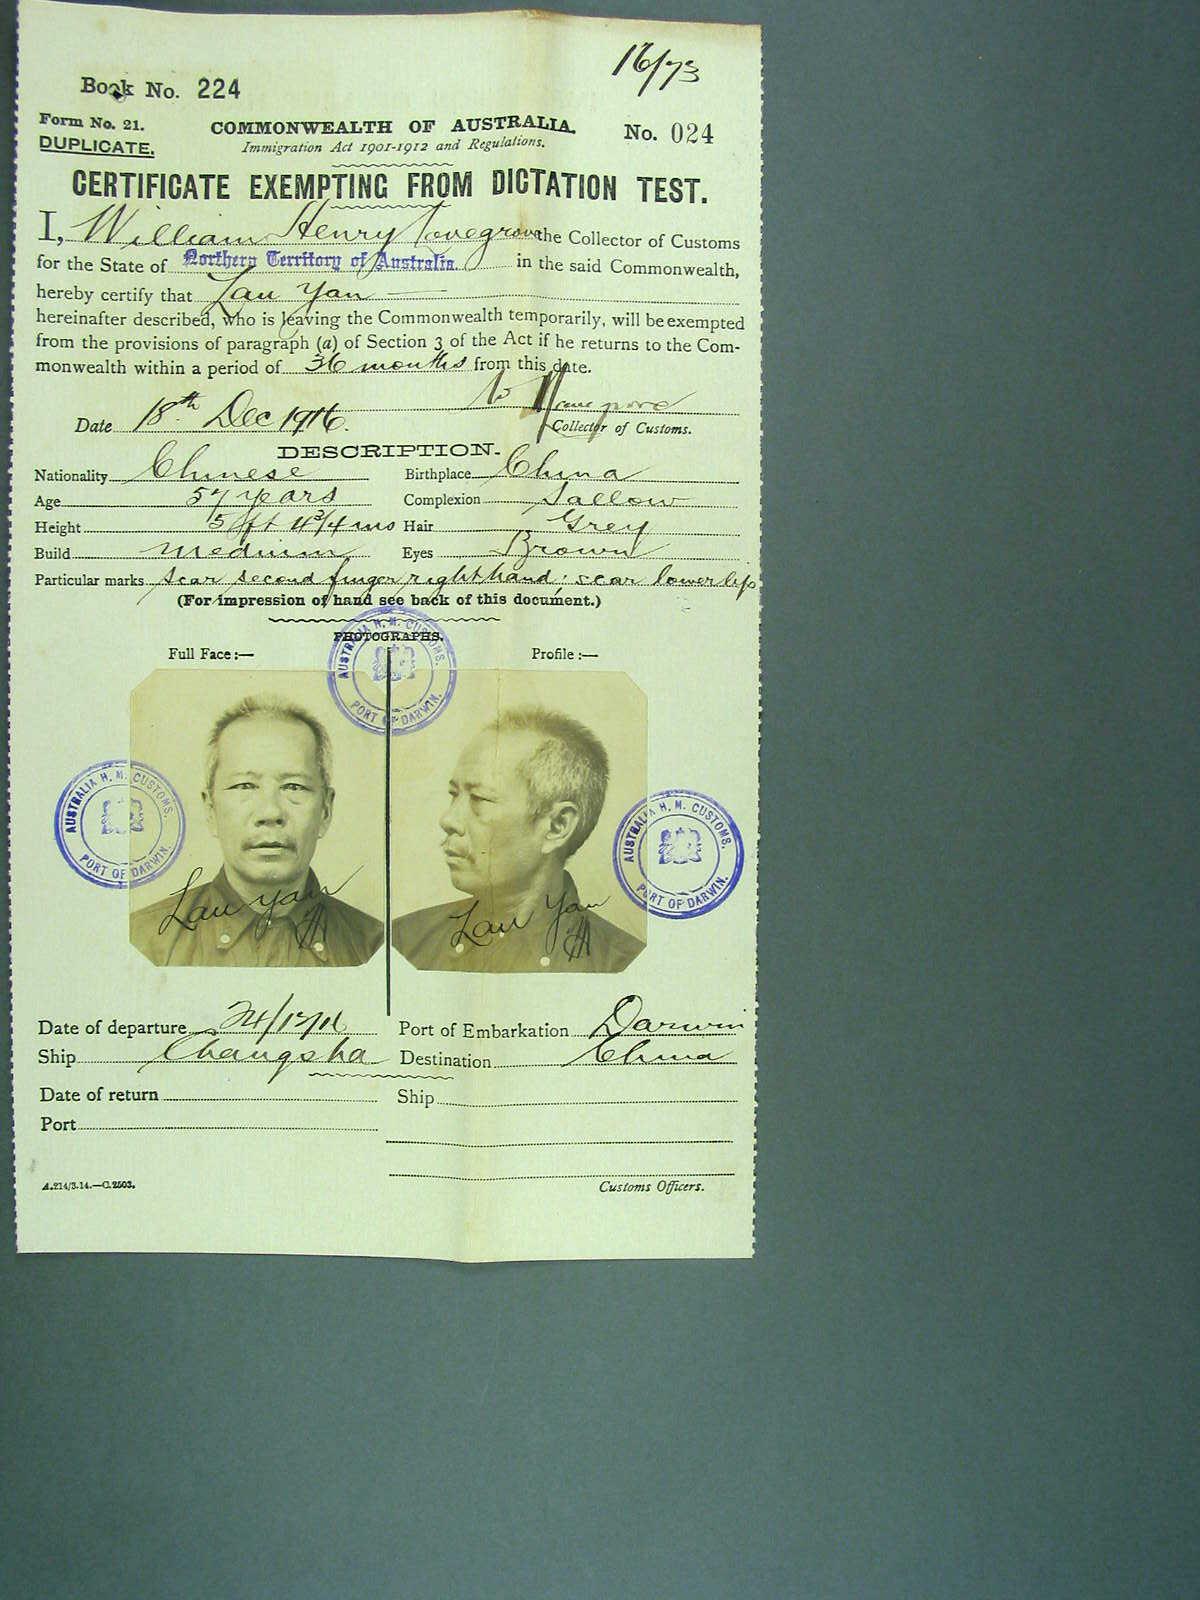 16/73
Book No. 224
Form No. 21.
COMMONWEALTH OF AUSTRALIA.
No. 024
DUPLICATE.
Immigration Act 1901-1912 and Regulations.
CERTIFICATE EXEMPTING FROM DICTATION TEST.
I, William Henry Lovegrove the Collector of Customs
for the State of Northern Territory of Australia. in the said Commonwealth,
hereby certify that Lau Yan
hereinafter described, who is leaving the Commonwealth temporarily, will be exempted
from the provisions of paragraph (a) of Section 3 of the Act if he returns to the Com-
monwealth within a period of 36 months from this date.
W H Lovegrove
Date 18th Dec 1916.
Collector of Customs.
DESCRIPTION.
Nationality Chinese Birthplace China
Age 57 years Complexion Sallow
Height 5 ft 4 3/4 ins Hair Grey
Build medium Eyes Brown
Particular marks scar second finger right hand; scar lower lip
(For impression of hand see back of this document.)
PHOTOGRAPHS.
Full Face:— Profile:—
AUSTRALIA H. M. CUSTOMS. PORT OF DARWIN.
AUSTRALIA H. M. CUSTOMS. PORT OF DARWIN.
AUSTRALIA H. M. CUSTOMS. PORT OF DARWIN.
Lau Yan
Lau Yan
Date of departure 24/12/16 Port of Embarkation Darwin
Ship Changsha Destination China
Date of return Ship
Port
A.214/3.14.—C.2503.
Customs Officers.